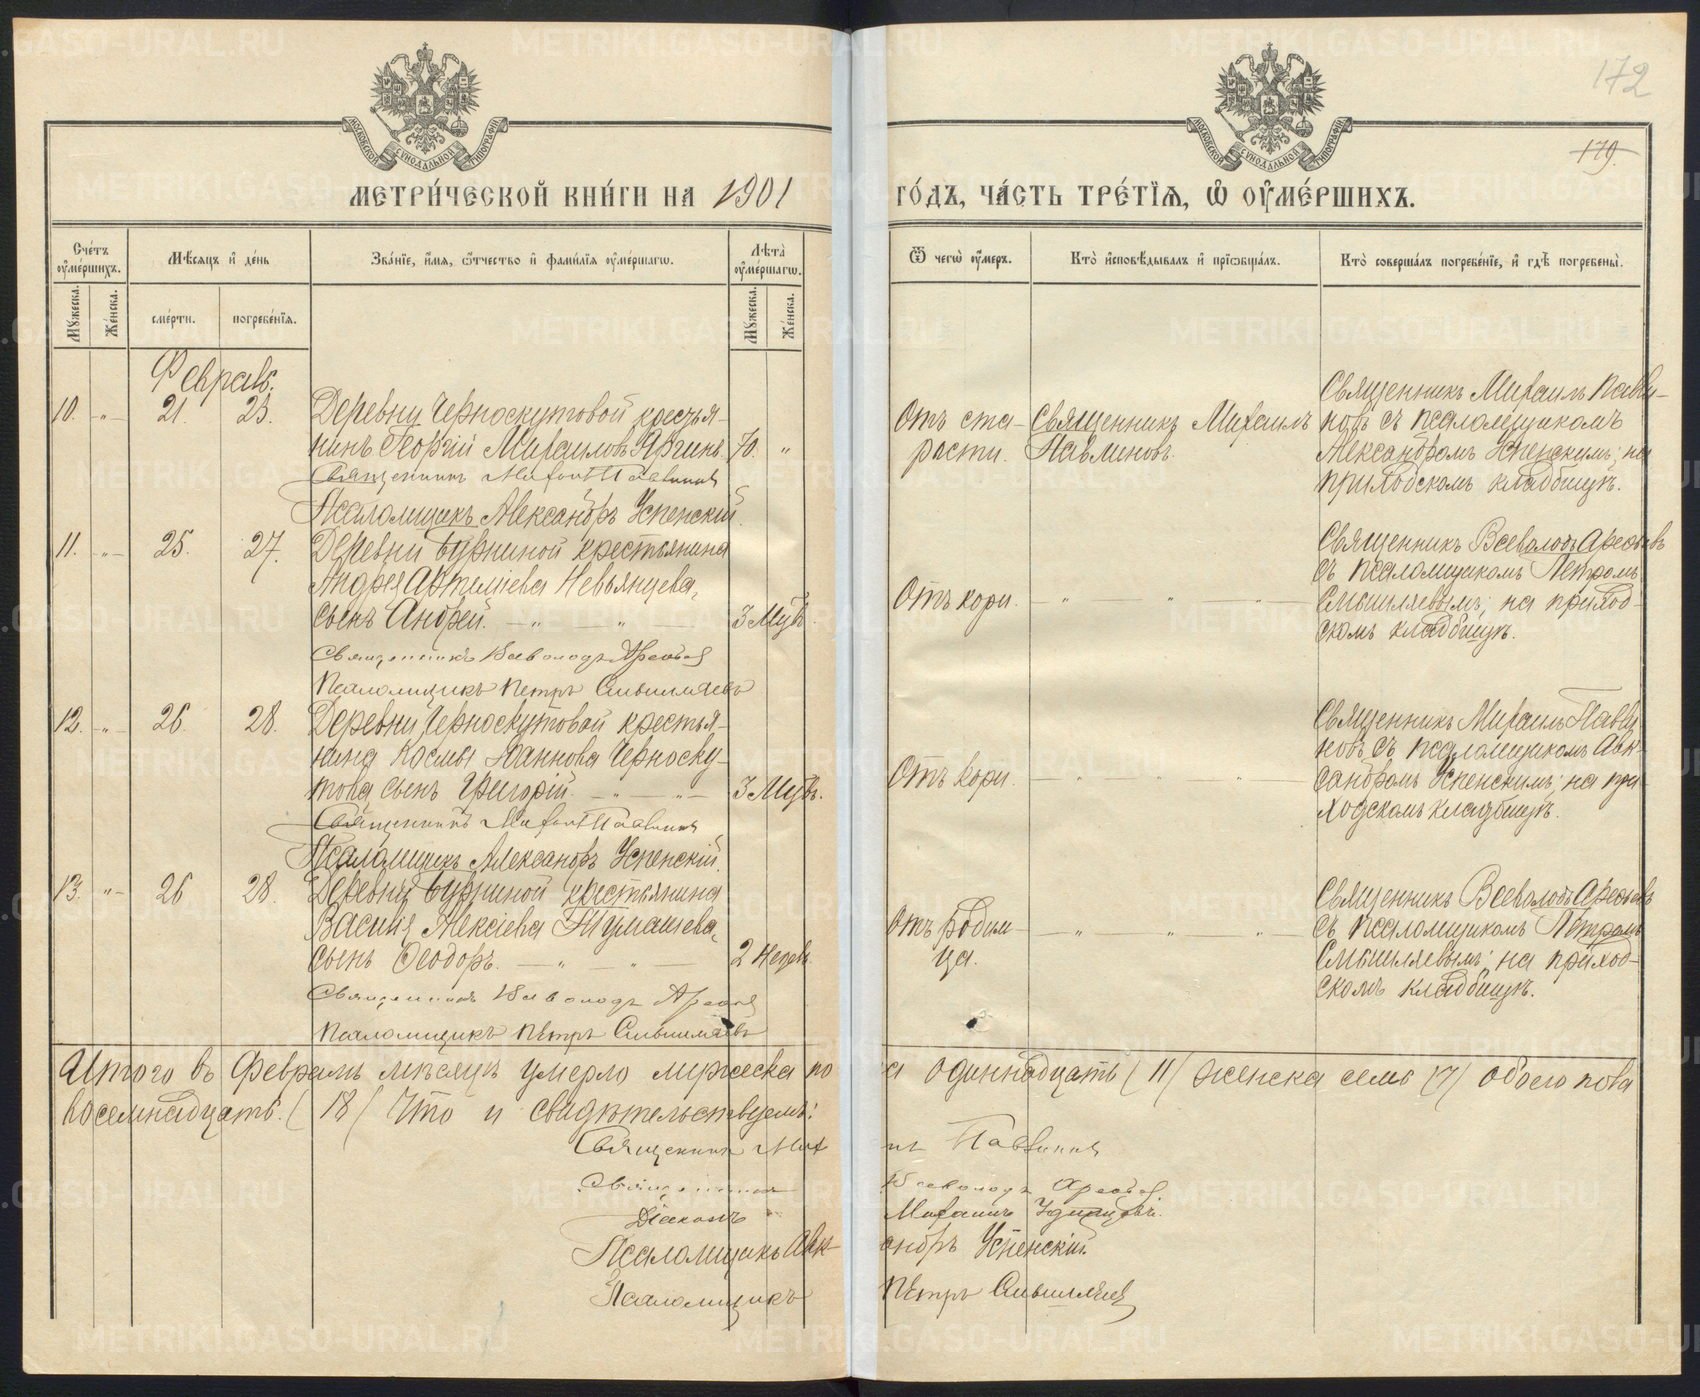 172
179.
МЕТРИ́ЧЕСКОЙ КНИ́ГИ НА 1901 ГО́ДЪ, ЧА́СТЬ ТРЕ́ТІѦ, Ѽ ОУ҆МЕ́РШИХЪ.
Сче́тъ оу҆ме́ршихъ.
Мѣ́сѧцъ и҆ де́нь
Зва́нїе, и҆́мѧ, ѻ҆́тчество и҆ фами́лїѧ оу҆ме́ршагѡ.
Лѣ́та оу҆ме́ршагѡ.
Ѿ чегѡ̀ оу҆́меръ.
Кто̀ и҆сповѣ́дывалъ и҆ прїѡбща́лъ.
Кто̀ соверша́лъ погребе́нїе, и҆ гдѣ̀ погребены̀.
Мꙋ́жеска.
Же́нска.
сме́рти.
погребе́нїѧ.
Мꙋ́жеска.
Же́нска.
Февраль.
10. „ 21. 23. Деревни Черноскутовой крестья-
нинъ Георгій Михаиловъ Яргинъ. 70. „
Священникъ Михаилъ Павлиновъ
Псаломщикъ Александръ Успенскій.
Отъ ста-
рости.
Священникъ Михаилъ
Павлиновъ.
Священникъ Михаилъ Павли-
новъ съ псаломщикомъ
Александромъ Успенскимъ; на
приходскомъ кладбищѣ.
11. „ 25. 27. Деревни Бурниной крестьянина
Андрея Артеміева Невьянцева,
сынъ Андрей. 3 Мцѣ.
Священникъ Всеволодъ Арефьевъ
Псаломщикъ Петръ Смышляевъ
Отъ кори. „ „ „
Священникъ Всеволодъ Арефьевъ
съ псаломщикомъ Петромъ
Смышляевымъ; на приход-
скомъ кладбищѣ.
12. „ 26. 28. Деревни Черноскутовой крестья-
нина Космы Іоаннова Черноску-
това сынъ Григорій. 3 Мцѣ.
Священникъ Михаилъ Павлиновъ
Псаломщикъ Александръ Успенскій.
Отъ кори. „ „ „
Священникъ Михаилъ Павли-
новъ съ псаломщикомъ Алек-
сандромъ Успенскимъ; на при-
ходскомъ кладбищѣ.
13. „ 26 28. Деревни Бурниной крестьянина
Василія Алексіева Тумашева,
сынъ Ѳеодоръ. 2 Недѣл.
Священникъ Всеволодъ Арефьевъ
Псаломщикъ Петръ Смышляевъ
Отъ родим-
ца. „ „ „
Священникъ Всеволодъ Арефьевъ
съ псаломщикомъ Петромъ
Смышляевымъ; на приход-
скомъ кладбищѣ.
Итого въ Февралѣ мѣсяцѣ умерло мужеска по а одиннадцать (11) женска семь (7) обоего пола
восемнадцать. (18) Что и свидѣтельствуемъ:
Священникъ Мих илъ Павлиновъ
Священникъ Всеволодъ Арефьевъ
Діаконъ Михаилъ
Псаломщикъ Алек андръ Успенскій.
Псаломщикъ Петръ Смышляевъ
METRIKI.GASO-URAL.RU